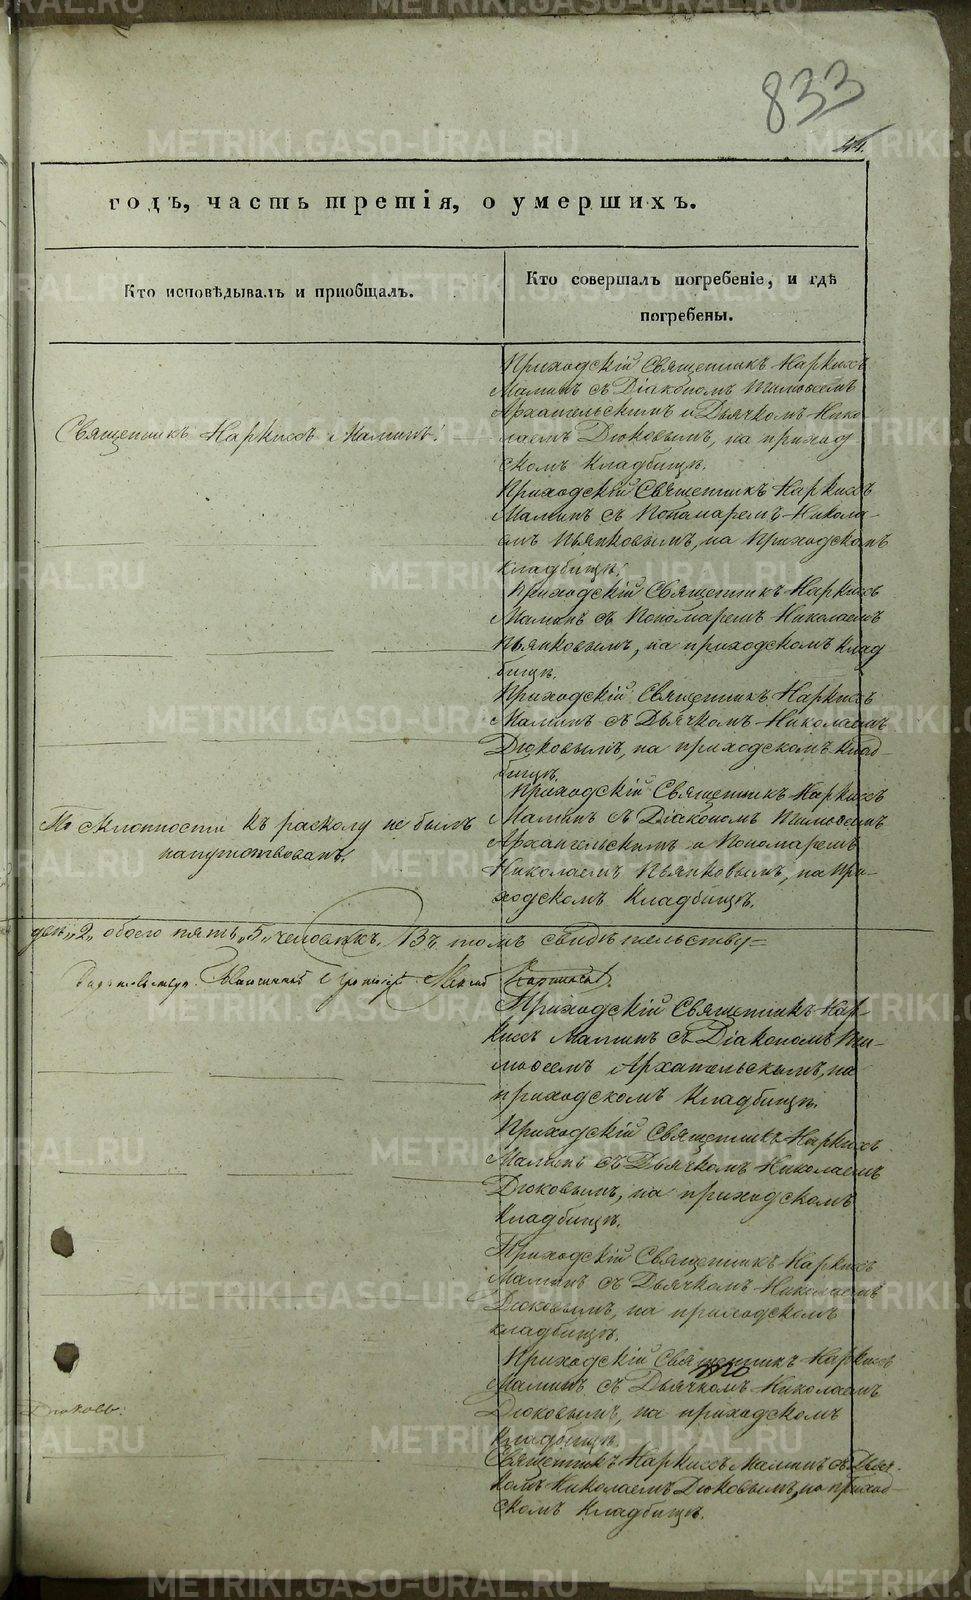 833
44.
годъ, часть третія, о умершихъ.
Кто исповѣдывалъ и пріобщалъ.
Кто совершалъ погребеніе, и гдѣ
погребены.
Приходскій Священникъ Наркисъ
Маминъ съ Діакономъ Тимоѳеемъ
Архангельскимъ и Дьячкомъ Нико-
лаемъ Дюковымъ, на приход
скомъ кладбищѣ.
Священникъ Наркисъ Маминъ.
Приходскій Священникъ Наркисъ
Маминъ съ Пономаремъ Никола-
емъ Пьянковымъ, на Приходскомъ
кладбищѣ.
Приходскій Священникъ Наркисъ
Маминъ съ Пономаремъ Николаемъ
Пьянковымъ, на приходскомъ клад
бищѣ.
Приходскій Священникъ Наркисъ
Маминъ съ Дьячкомъ Николаемъ
Дюковымъ, на приходскомъ клад-
бищѣ.
По склонности къ расколу не былъ
напутствованъ.
Приходскій Священникъ Наркисъ
Маминъ съ Діакономъ Тимоѳеемъ
Архангельскимъ и Пономаремъ
Николаемъ Пьянковымъ, на при-
ходскомъ кладбищѣ.
„2„ обоего пять „5„ человѣкъ. Въ томъ свидѣтельству=
Священникъ
Приходскій Священникъ Нар-
кисъ Маминъ съ Діакономъ Ти-
моѳеемъ Архангельскимъ, на
приходскомъ кладбищѣ.
Приходскій Священникъ Наркисъ
Маминъ съ Дьячкомъ Николаемъ
Дюковымъ, на приходскомъ
кладбищѣ.
Приходскій Священникъ Наркисъ
Маминъ съ Дьячкомъ Николаемъ
Дюковымъ, на приходскомъ
кладбищѣ.
Приходскій Священникъ Наркисъ
Маминъ съ Дьячкомъ Николаемъ
Дюковымъ, на приходскомъ
кладбищѣ.
Дюковъ.
Священникъ Наркисъ Маминъ съ Дьяч-
комъ Николаемъ Дюковымъ, на приход-
скомъ кладбищѣ.
METRIKI.GASO-URAL.RU